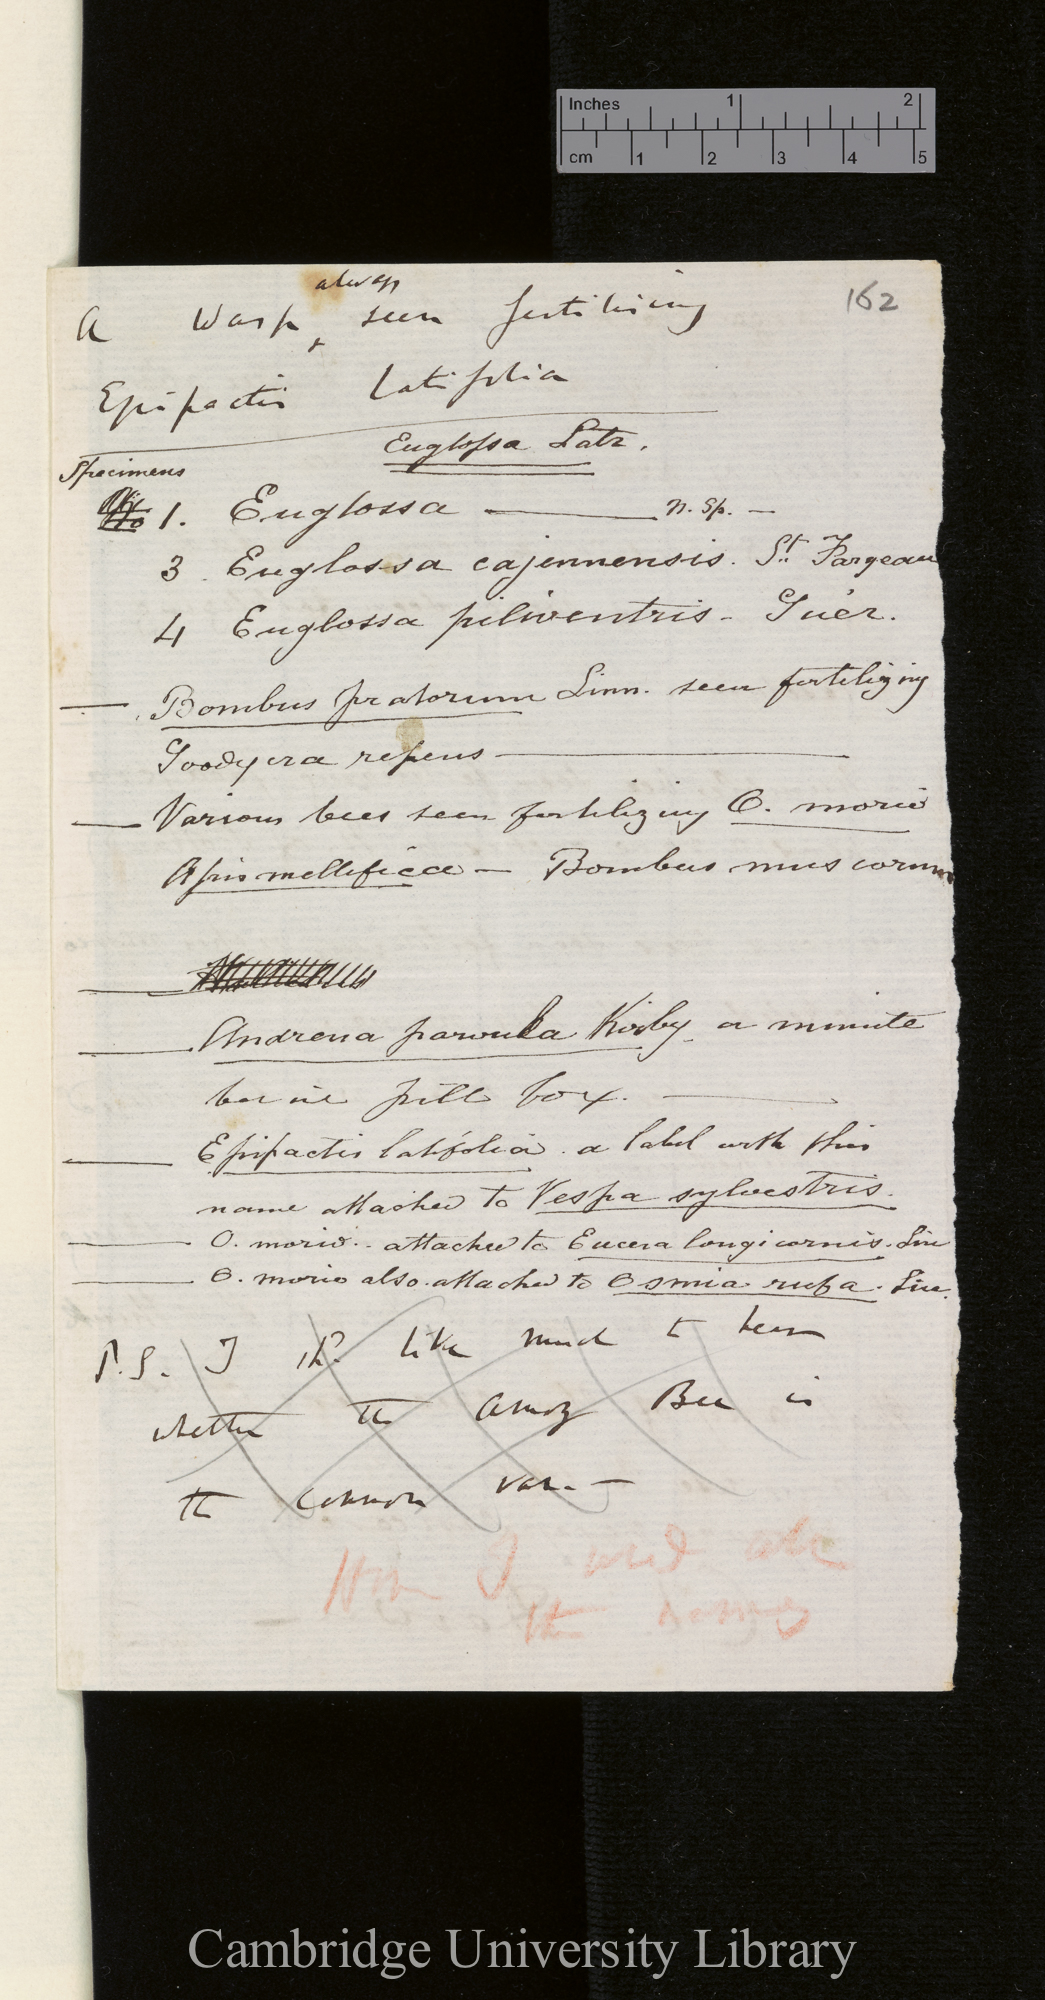 Inches 1 2
cm 1 2 3 4 5
162
always
A Wasp seen fertilising
Epipactis latifolia
Euglossa Latr.
Specimens
1. Euglossa — n. sp. —
3. Euglossa cajennensis. St. Fargeau
4 Euglossa piliventris - Guér.
— Bombus pratorum Linn. seen fertilizing
Goodyera repens —
— Various bees seen fertilizing O. morio
Apis mellifica — Bombus muscorum
— Andrena parvula Kirby. a minute
bee in pill box. —
— Epipactis latifolia. a label with this
name attached to Vespa sylvestris.
— O. morio.. attached to Eucera longicornis. Lin
— O. morio also attached to Osmia rufa. Lin.
P.S. I shd. like much to hear
whether the Bee is
the common var. —
I
the
Cambridge University Library